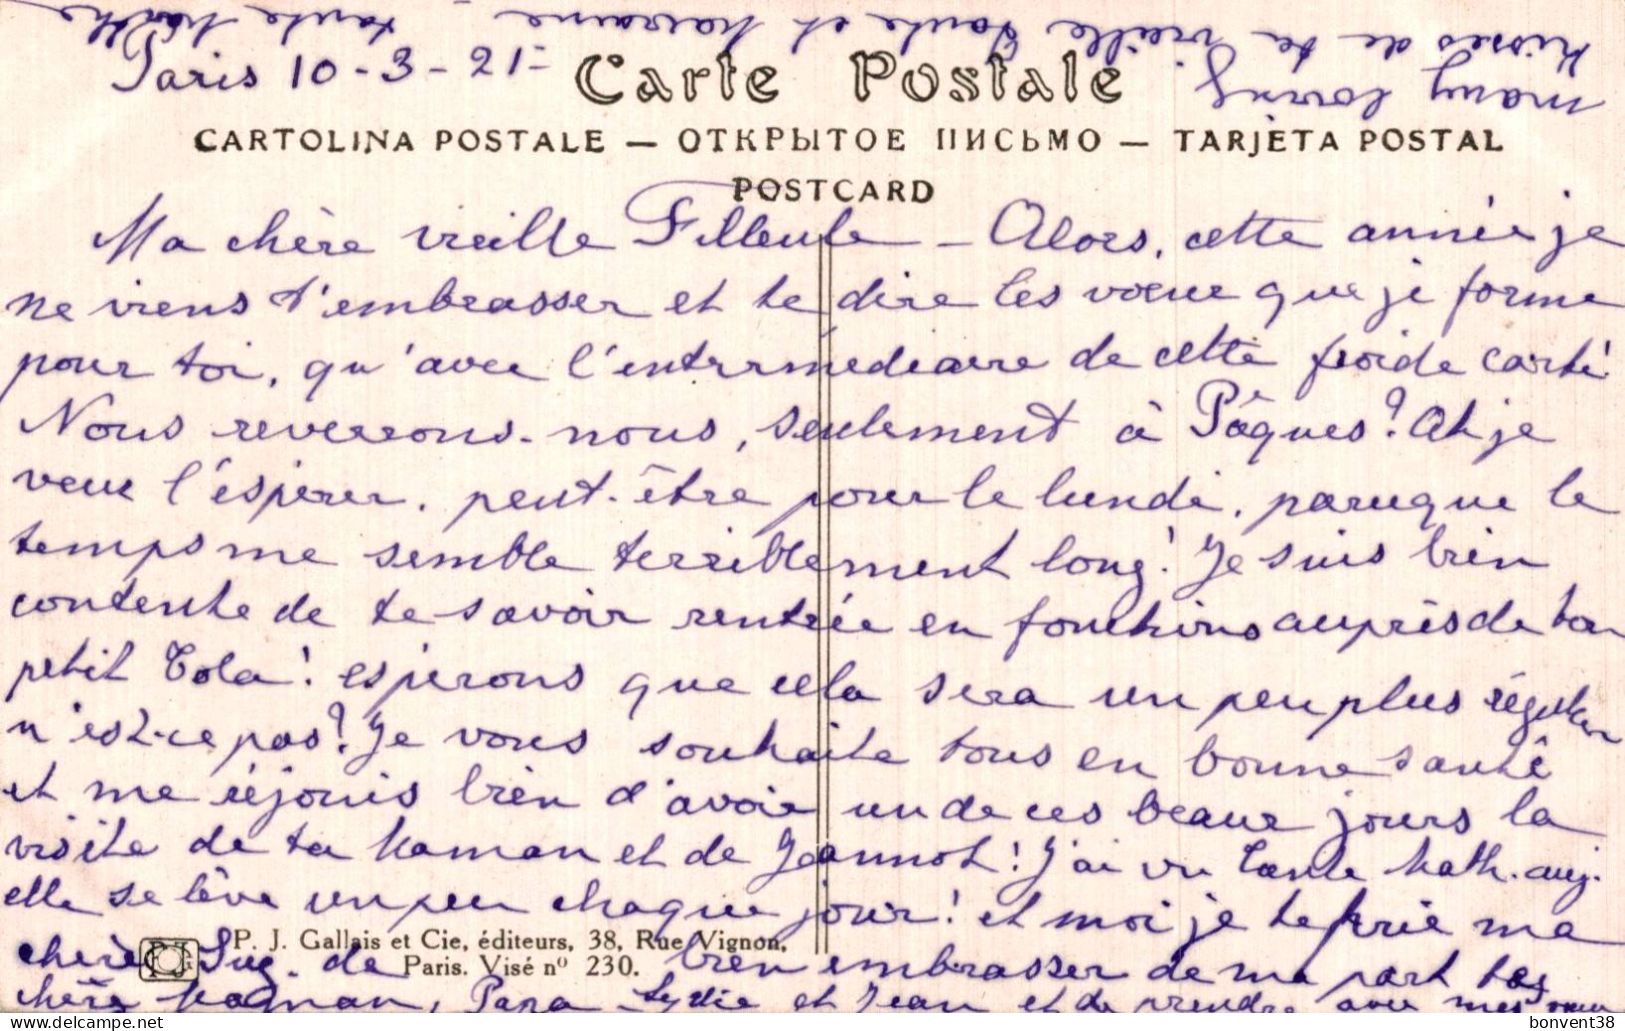 Paris 10-3-21-
Carte Postale
CARTOLINA POSTALE — ОТКРЫТОЕ ПИСЬМО — TARJETA POSTAL
POSTCARD
Ma chère vieille Filleule - Alors, cette année je
ne viens t'embrasser et te dire les vœux que je forme
pour toi, qu'avec l'intermédiaire de cette froide carte!
Nous reverrons-nous, seulement à Pâques? Ah je
veux l'espérer, peut-être pour le lundi, parceque le
temps me semble terriblement long! Je suis bien
contente de te savoir rentrée en fonctions auprès de ton
petit Tola! espérons que cela sera un peu plus régulier
n'est-ce pas? Je vous souhaite tous en bonne santé
et me réjouis bien d'avoir un de ces beaux jours la
visite de ta Maman et de Jeannot! J'ai vu Tante Math. auj.
elle se lève un peu chaque jour! et moi je te prie ma
chère Sug. de bien embrasser de ma part ta
chère Maman, Papa Lydie et Jean et de prendre avec mes vœux
many loving
kisses de ta vieille Tante et Marraine
tante Marthe
P. J. Gallais et Cie, éditeurs, 38, Rue Vignon,
Paris. Visé nº 230.
bonvent38